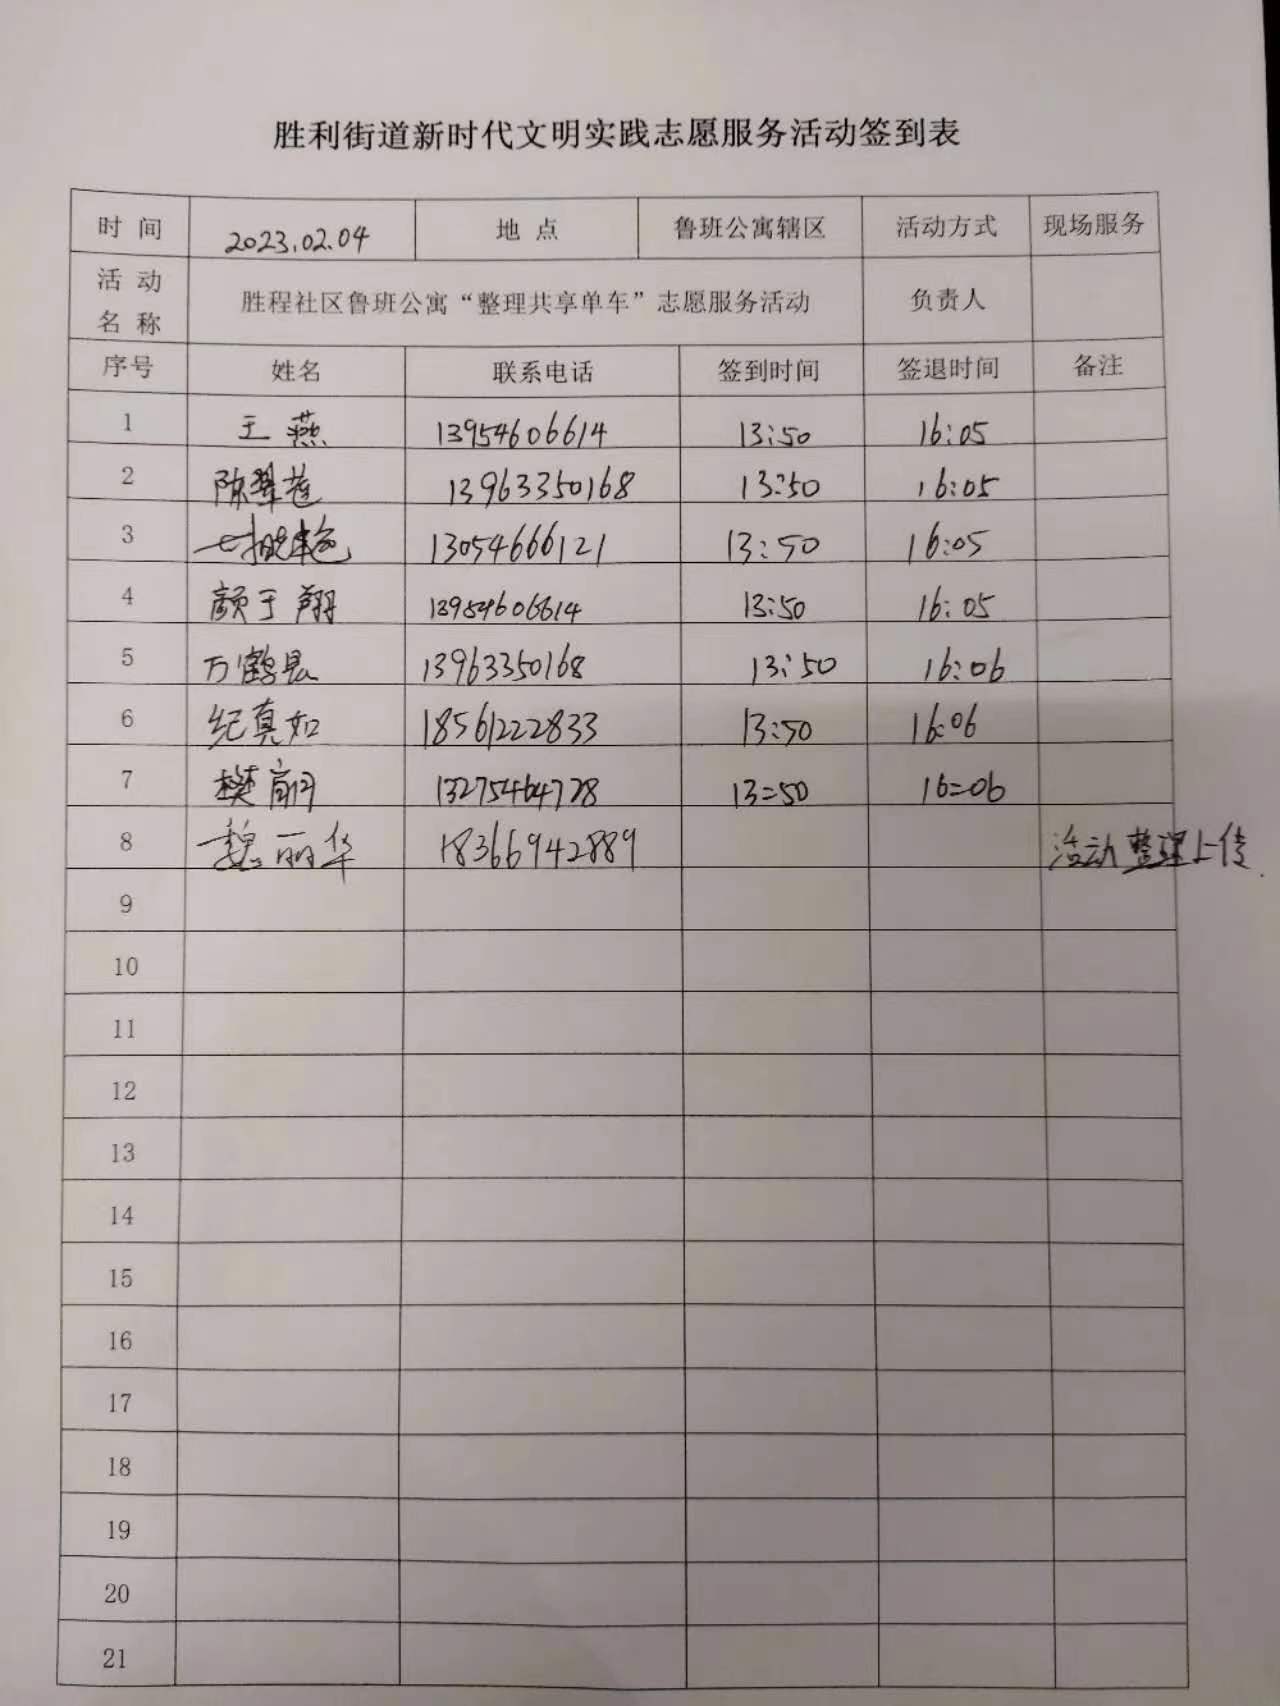 胜利街道新时代文明实践志愿服务活动签到表
时 间 2023.02.04 地 点 鲁班公寓辖区 活动方式 现场服务
活 动 名 称 胜程社区鲁班公寓“整理共享单车”志愿服务活动 负责人
序号 姓名 联系电话 签到时间 签退时间 备注
1 王燕 13954606614 13:50 16:05
2 陈翠莲 13963350168 13:50 16:05
3 13054666121 13:50 16:05
4 颜于翔 13954606614 13:50 16:05
5 万鹤 13963350168 13:50 16:06
6 纪真如 18561222833 13:50 16:06
7 樊 13275464728 13:50 16:06
8 魏丽华 18366942889 活动整理上传.
9
10
11
12
13
14
15
16
17
18
19
20
21